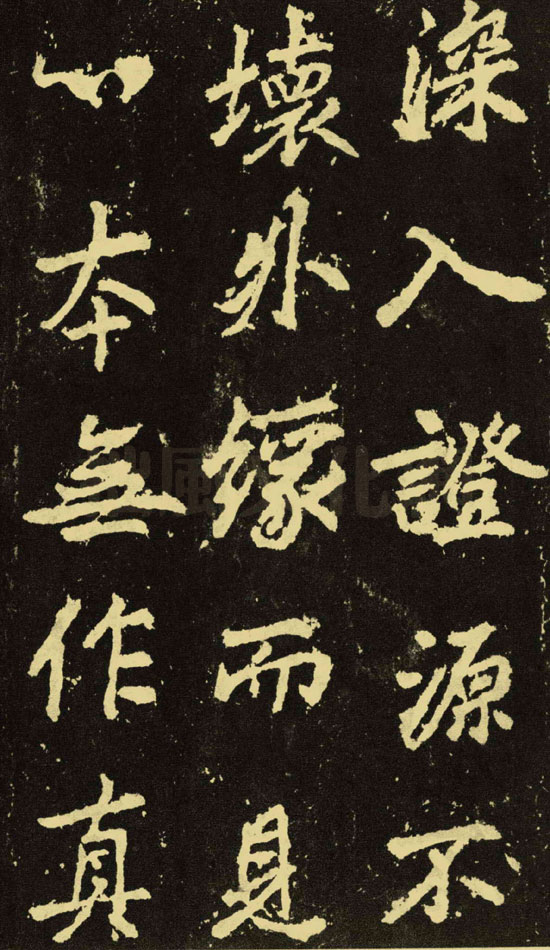 深入證源不
壞外緣而見
心本無作真